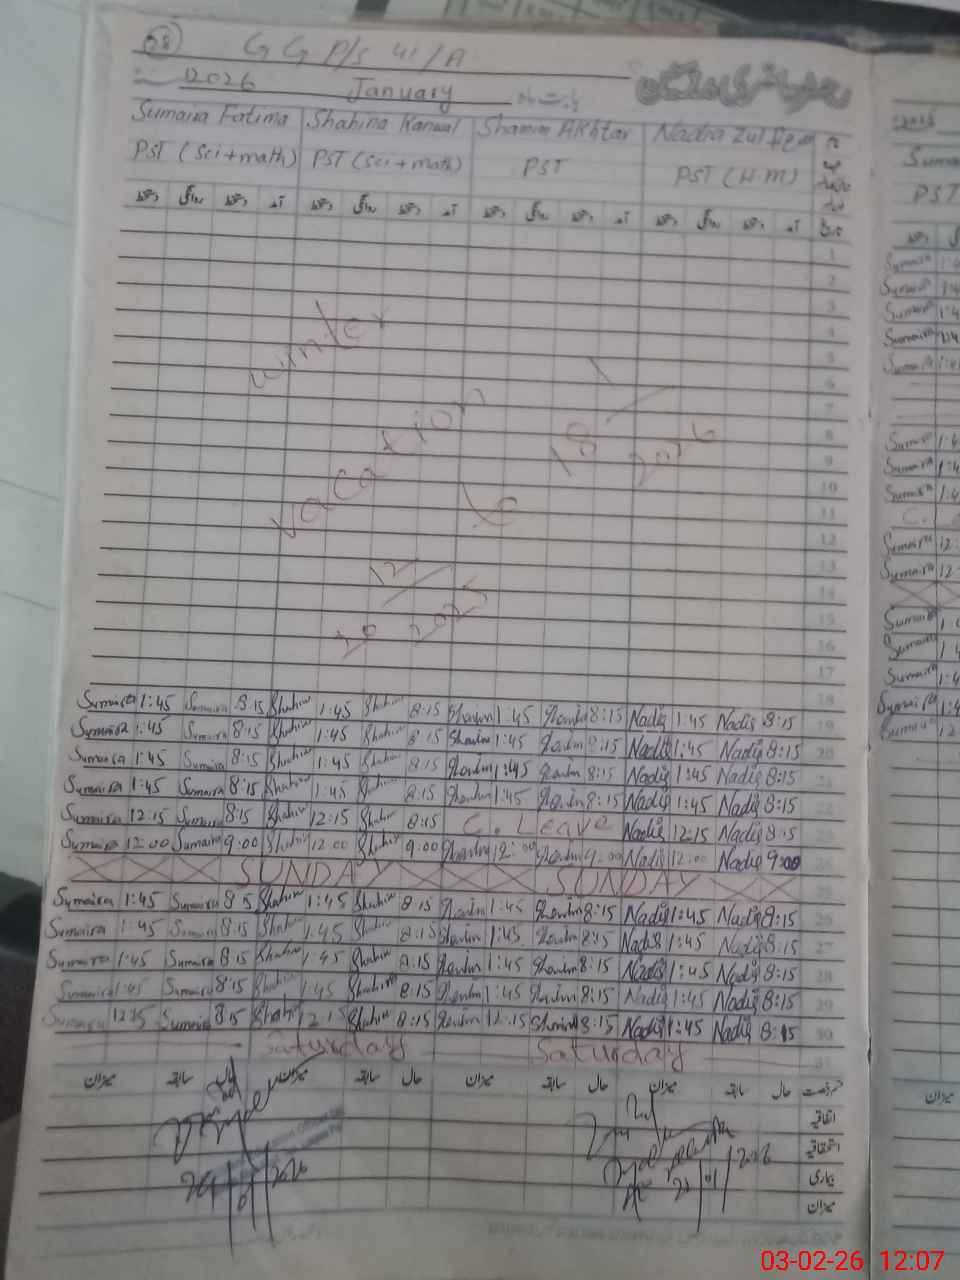 68
G G P/S 41/A
2026 January بابت ماہ
رجسٹر حاضری ملازمین
Sumaira Fatima Shahina Kanwal Shamim Akhtar Nadia Zulfiqar
PST (Sci+math) PST (Sci+math) PST PST (H.M)
دستخط روانگی دستخط آمد دستخط روانگی دستخط آمد دستخط روانگی دستخط آمد دستخط روانگی دستخط آمد تاریخ
1
2
3
4
5
6
7
8
9
10
11
12
13
14
15
16
17
winter
vacation
20 12 2025
to
18 1 2026
18
Sumaira 1:45 Sumaira 8:15 Shahin 1:45 Shahin 8:15 Shamim 1:45 Shamim 8:15 Nadia 1:45 Nadia 8:15 19
Sumaira 1:45 Sumaira 8:15 Shahin 1:45 Shahin 8:15 Shamim 1:45 Shamim 8:15 Nadia 1:45 Nadia 8:15 20
Sumaira 1:45 Sumaira 8:15 Shahin 1:45 Shahin 8:15 Shamim 1:45 Shamim 8:15 Nadia 1:45 Nadia 8:15 21
Sumaira 1:45 Sumaira 8:15 Shahin 1:45 Shahin 8:15 Shamim 1:45 Shamim 8:15 Nadia 1:45 Nadia 8:15 22
Sumaira 12:15 Sumaira 8:15 Shahin 12:15 Shahin 8:15 C. Leave Nadia 12:15 Nadia 8:15 23
Sumaira 12:00 Sumaira 9:00 Shahin 12:00 Shahin 9:00 Shamim 12:00 Shamim 9:00 Nadia 12:00 Nadia 9:00 24
SUNDAY SUNDAY 25
Sumaira 1:45 Sumaira 8:15 Shahin 1:45 Shahin 8:15 Shamim 1:45 Shamim 8:15 Nadia 1:45 Nadia 8:15 26
Sumaira 1:45 Sumaira 8:15 Shahin 1:45 Shahin 8:15 Shamim 1:45 Shamim 8:15 Nadia 1:45 Nadia 8:15 27
Sumaira 1:45 Sumaira 8:15 Shahin 1:45 Shahin 8:15 Shamim 1:45 Shamim 8:15 Nadia 1:45 Nadia 8:15 28
Sumaira 1:45 Sumaira 8:15 Shahin 1:45 Shahin 8:15 Shamim 1:45 Shamim 8:15 Nadia 1:45 Nadia 8:15 29
Sumaira 12:15 Sumaira 8:15 Shahin 12:15 Shahin 8:15 Shamim 12:15 Shamim 8:15 Nadia 1:45 Nadia 8:15 30
Saturday Saturday 31
میزان سابقہ حال میزان سابقہ حال میزان سابقہ حال میزان سابقہ حال رخصت
اتفاقیہ
استحقاقیہ
بیماری
میزان
01 2026
01 2026
03-02-26 12:07